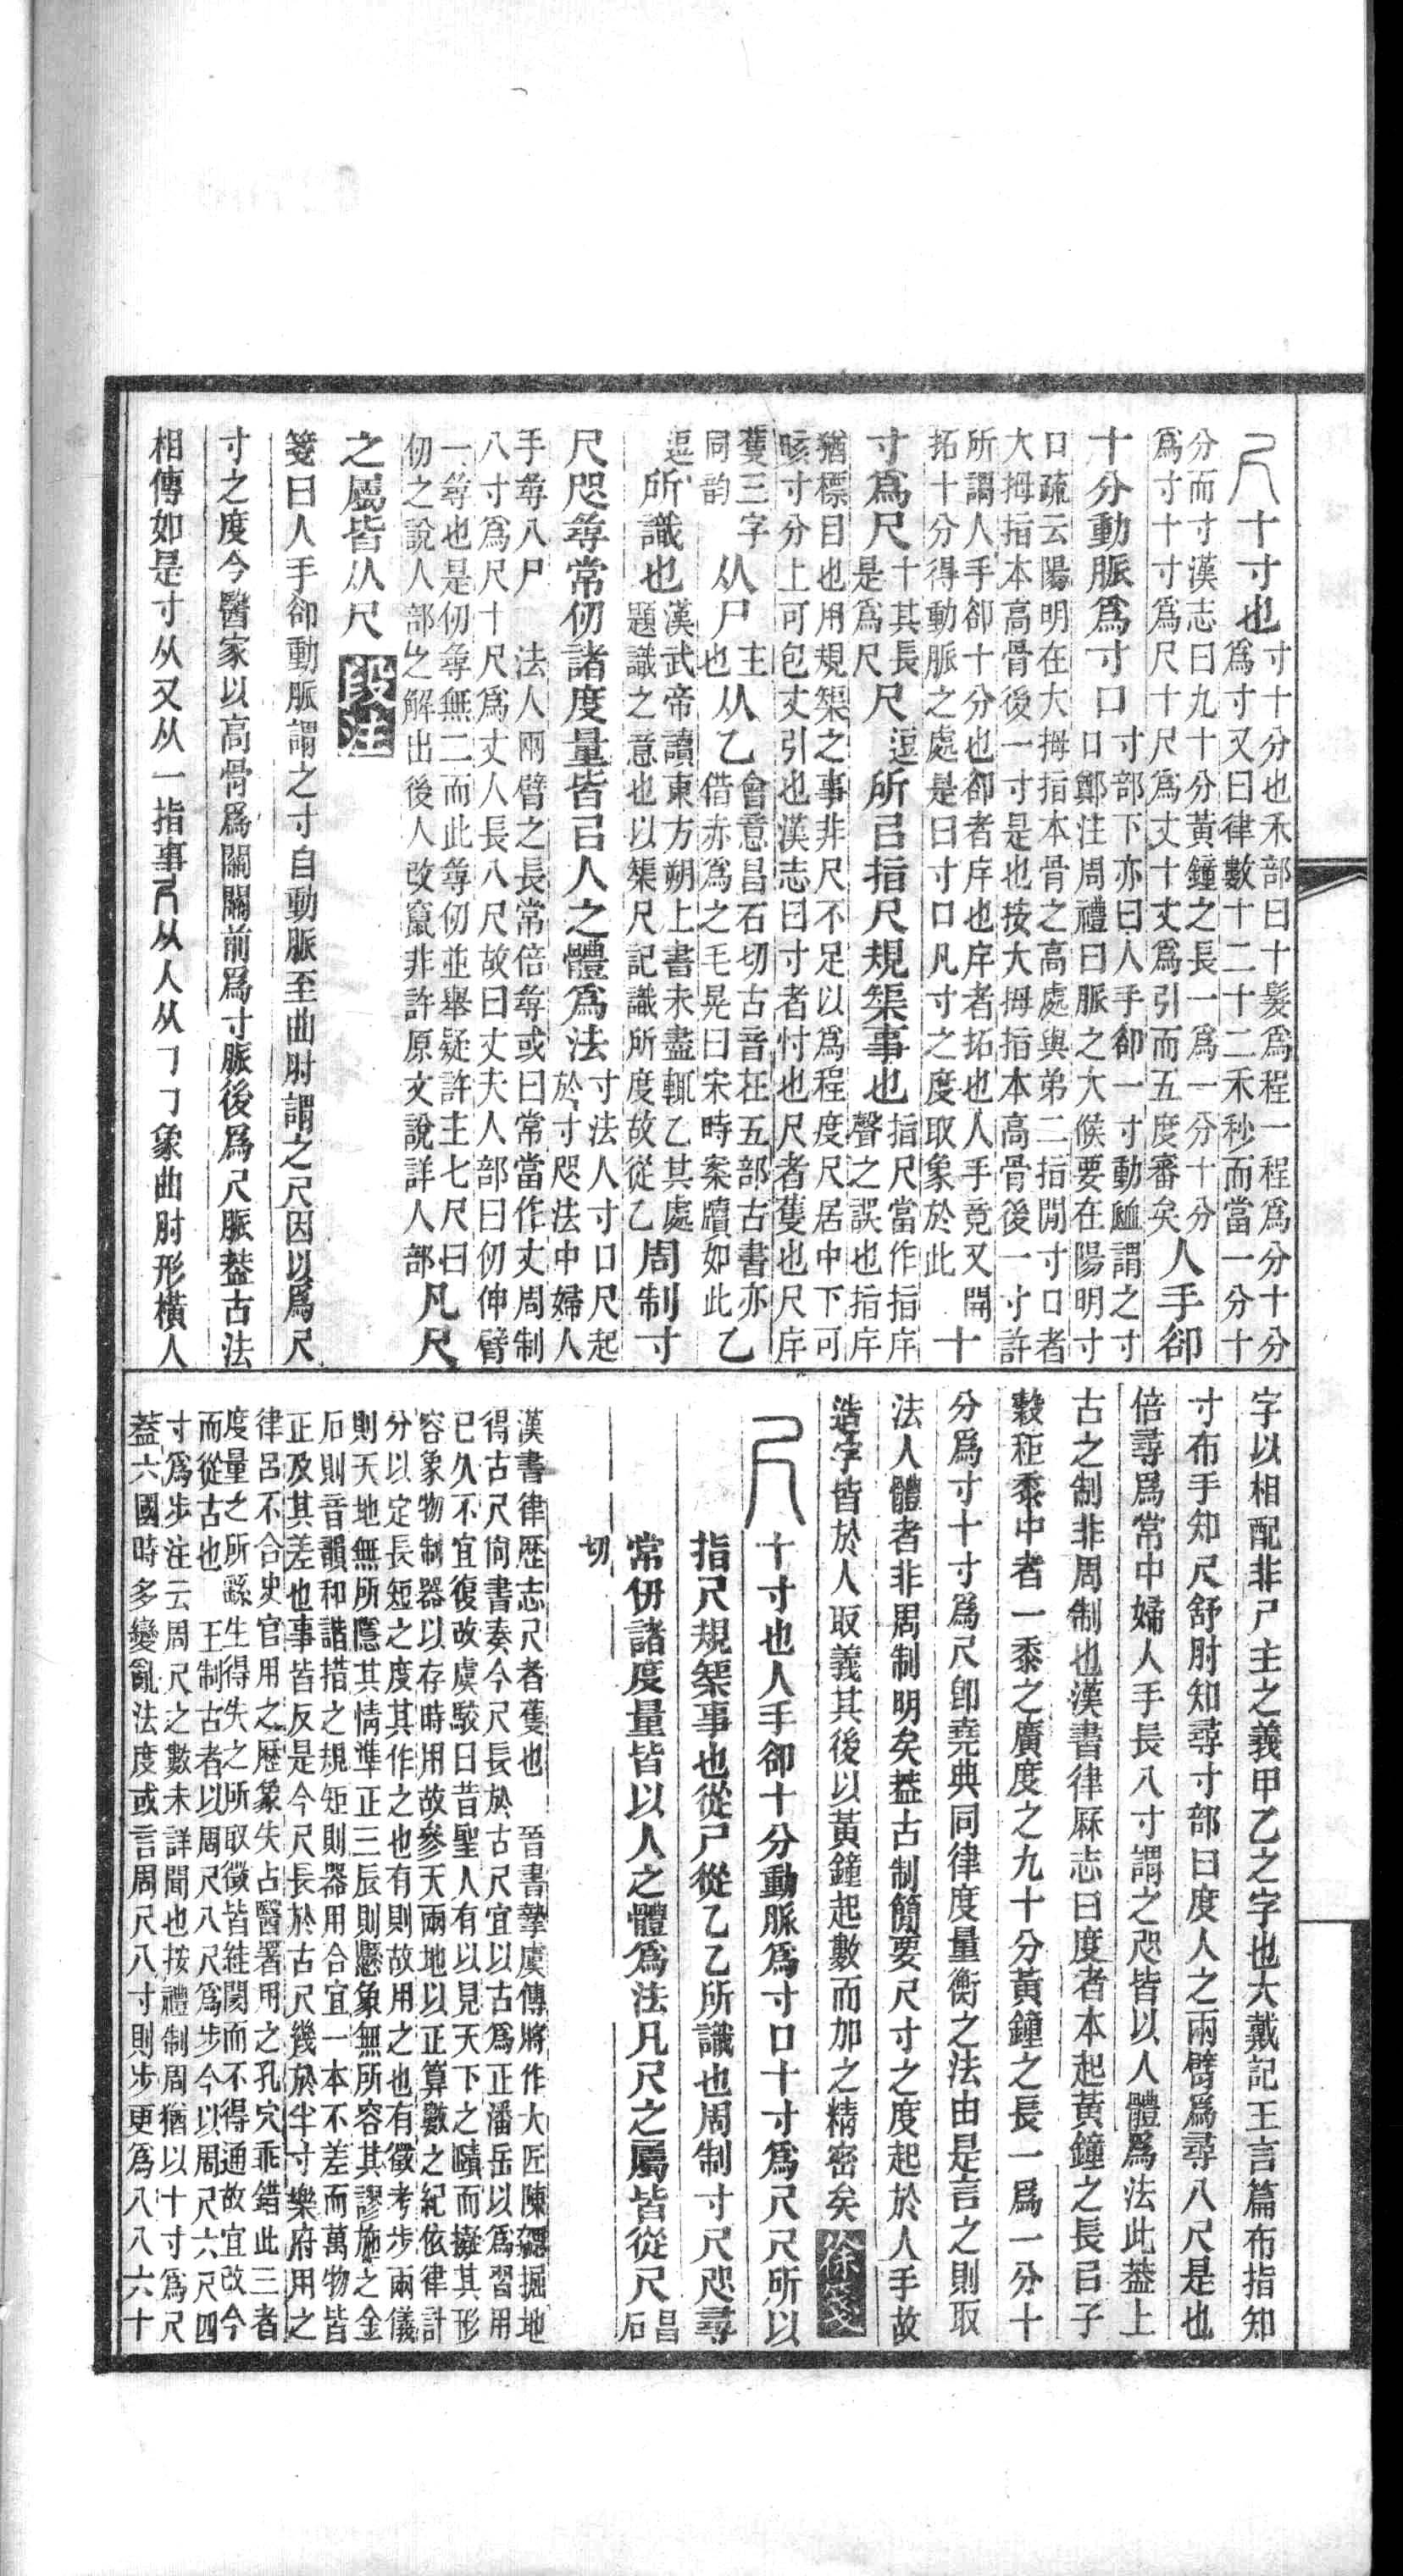 尺十寸也寸十分也禾部曰十髮爲程一程爲分十分
爲寸又曰律數十二十二禾秒而當一分十
分而寸漢志曰九十分黃鐘之長一爲一分十分
爲寸十寸爲尺十尺爲丈十丈爲引而五度審矣人手卻
十分動脈爲寸口寸部下亦曰人手卻一寸動䘑謂之寸
口鄭注周禮曰脈之大候要在陽明寸
口疏云陽明在大拇指本骨之高處與弟二指閒寸口者
大拇指本高骨後一寸是也按大拇指本高骨後一寸許
所謂人手卻十分也卻者㡿也㡿者拓也人手竟又開
拓十分得動脈之處是曰寸口凡寸之度取象於此十
寸爲尺十其長
是爲尺尺逗所㠯指尺規榘事也指尺當作指㡿
聲之誤也指㡿
猶標目也用規榘之事非尺不足以爲程度尺居中下可
晐寸分上可包丈引也漢志曰寸者忖也尺者蒦也尺㡿
蒦三字
同韵从尸主
也从乙會意昌石切古音在五部古書亦
借赤爲之毛晃曰宋時案牘如此乙
逗所識也漢武帝讀東方朔上書未盡輒乙其處
題識之意也以榘尺記識所度故從乙周制寸
尺咫尋常仞諸度量皆㠯人之體爲法寸法人寸口尺起
於寸咫法中婦人
手尋八尸 法人兩臂之長常倍尋或曰常當作丈周制
八寸爲尺十尺爲丈人長八尺故曰丈夫人部曰仞伸臂
一尋也是仞尋無二而此尋仞並舉疑許主七尺曰
仞之說人部之解出後人改竄非許原文說詳人部凡尺
之屬皆从尺 段注
箋曰人手卻動脈謂之寸自動脈至曲肘謂之尺因以爲尺
寸之度今醫家以高骨爲關關前爲寸脈後爲尺脈葢古法
相傳如是寸从又从一指事尺从人从㇆㇆象曲肘形橫人
字以相配非尸主之義甲乙之字也大戴記王言篇布指知
寸布手知尺舒肘知尋寸部曰度人之兩臂爲尋八尺是也
倍尋爲常中婦人手長八寸謂之咫皆以人體爲法此葢上
古之制非周制也漢書律厤志曰度者本起黃鐘之長㠯子
穀秬黍中者一黍之廣度之九十分黃鐘之長一爲一分十
分爲寸十寸爲尺卽堯典同律度量衡之法由是言之則取
法人體者非周制明矣葢古制簡要尺寸之度起於人手故
造字皆於人取義其後以黃鐘起數而加之精密矣 徐箋
尺十寸也人手卻十分動脈爲寸口十寸爲尺尺所以
指尺規榘事也從尸從乙乙所識也周制寸尺咫尋
常仞諸度量皆以人之體爲法凡尺之屬皆從尺昌
石
切
漢書律歴志尺者蒦也 晉書摯虞傳將作大匠陳勰掘地
得古尺尙書奏今尺長於古尺宜以古爲正潘岳以爲習用
已久不宜復改虞駁曰昔聖人有以見天下之賾而擬其形
容象物制器以存時用故參天兩地以正算數之紀依律計
分以定長短之度其作之也有則故用之也有徵考步兩儀
則天地無所隱其情準正三辰則懸象無所容其謬施之金
石則音韻和諧措之規矩則器用合宜一本不差而萬物皆
正及其差也事皆反是今尺長於古尺幾於半寸樂府用之
律呂不合史官用之歷象失占醫署用之孔穴乖錯此三者
度量之所繇生得失之所取徵皆絓閡而不得通故宜改今
而從古也 王制古者以周尺八尺爲步今以周尺六尺四
寸爲步注云周尺之數未詳聞也按禮制周猶以十寸爲尺
葢六國時多變亂法度或言周尺八寸則步更爲八八六十